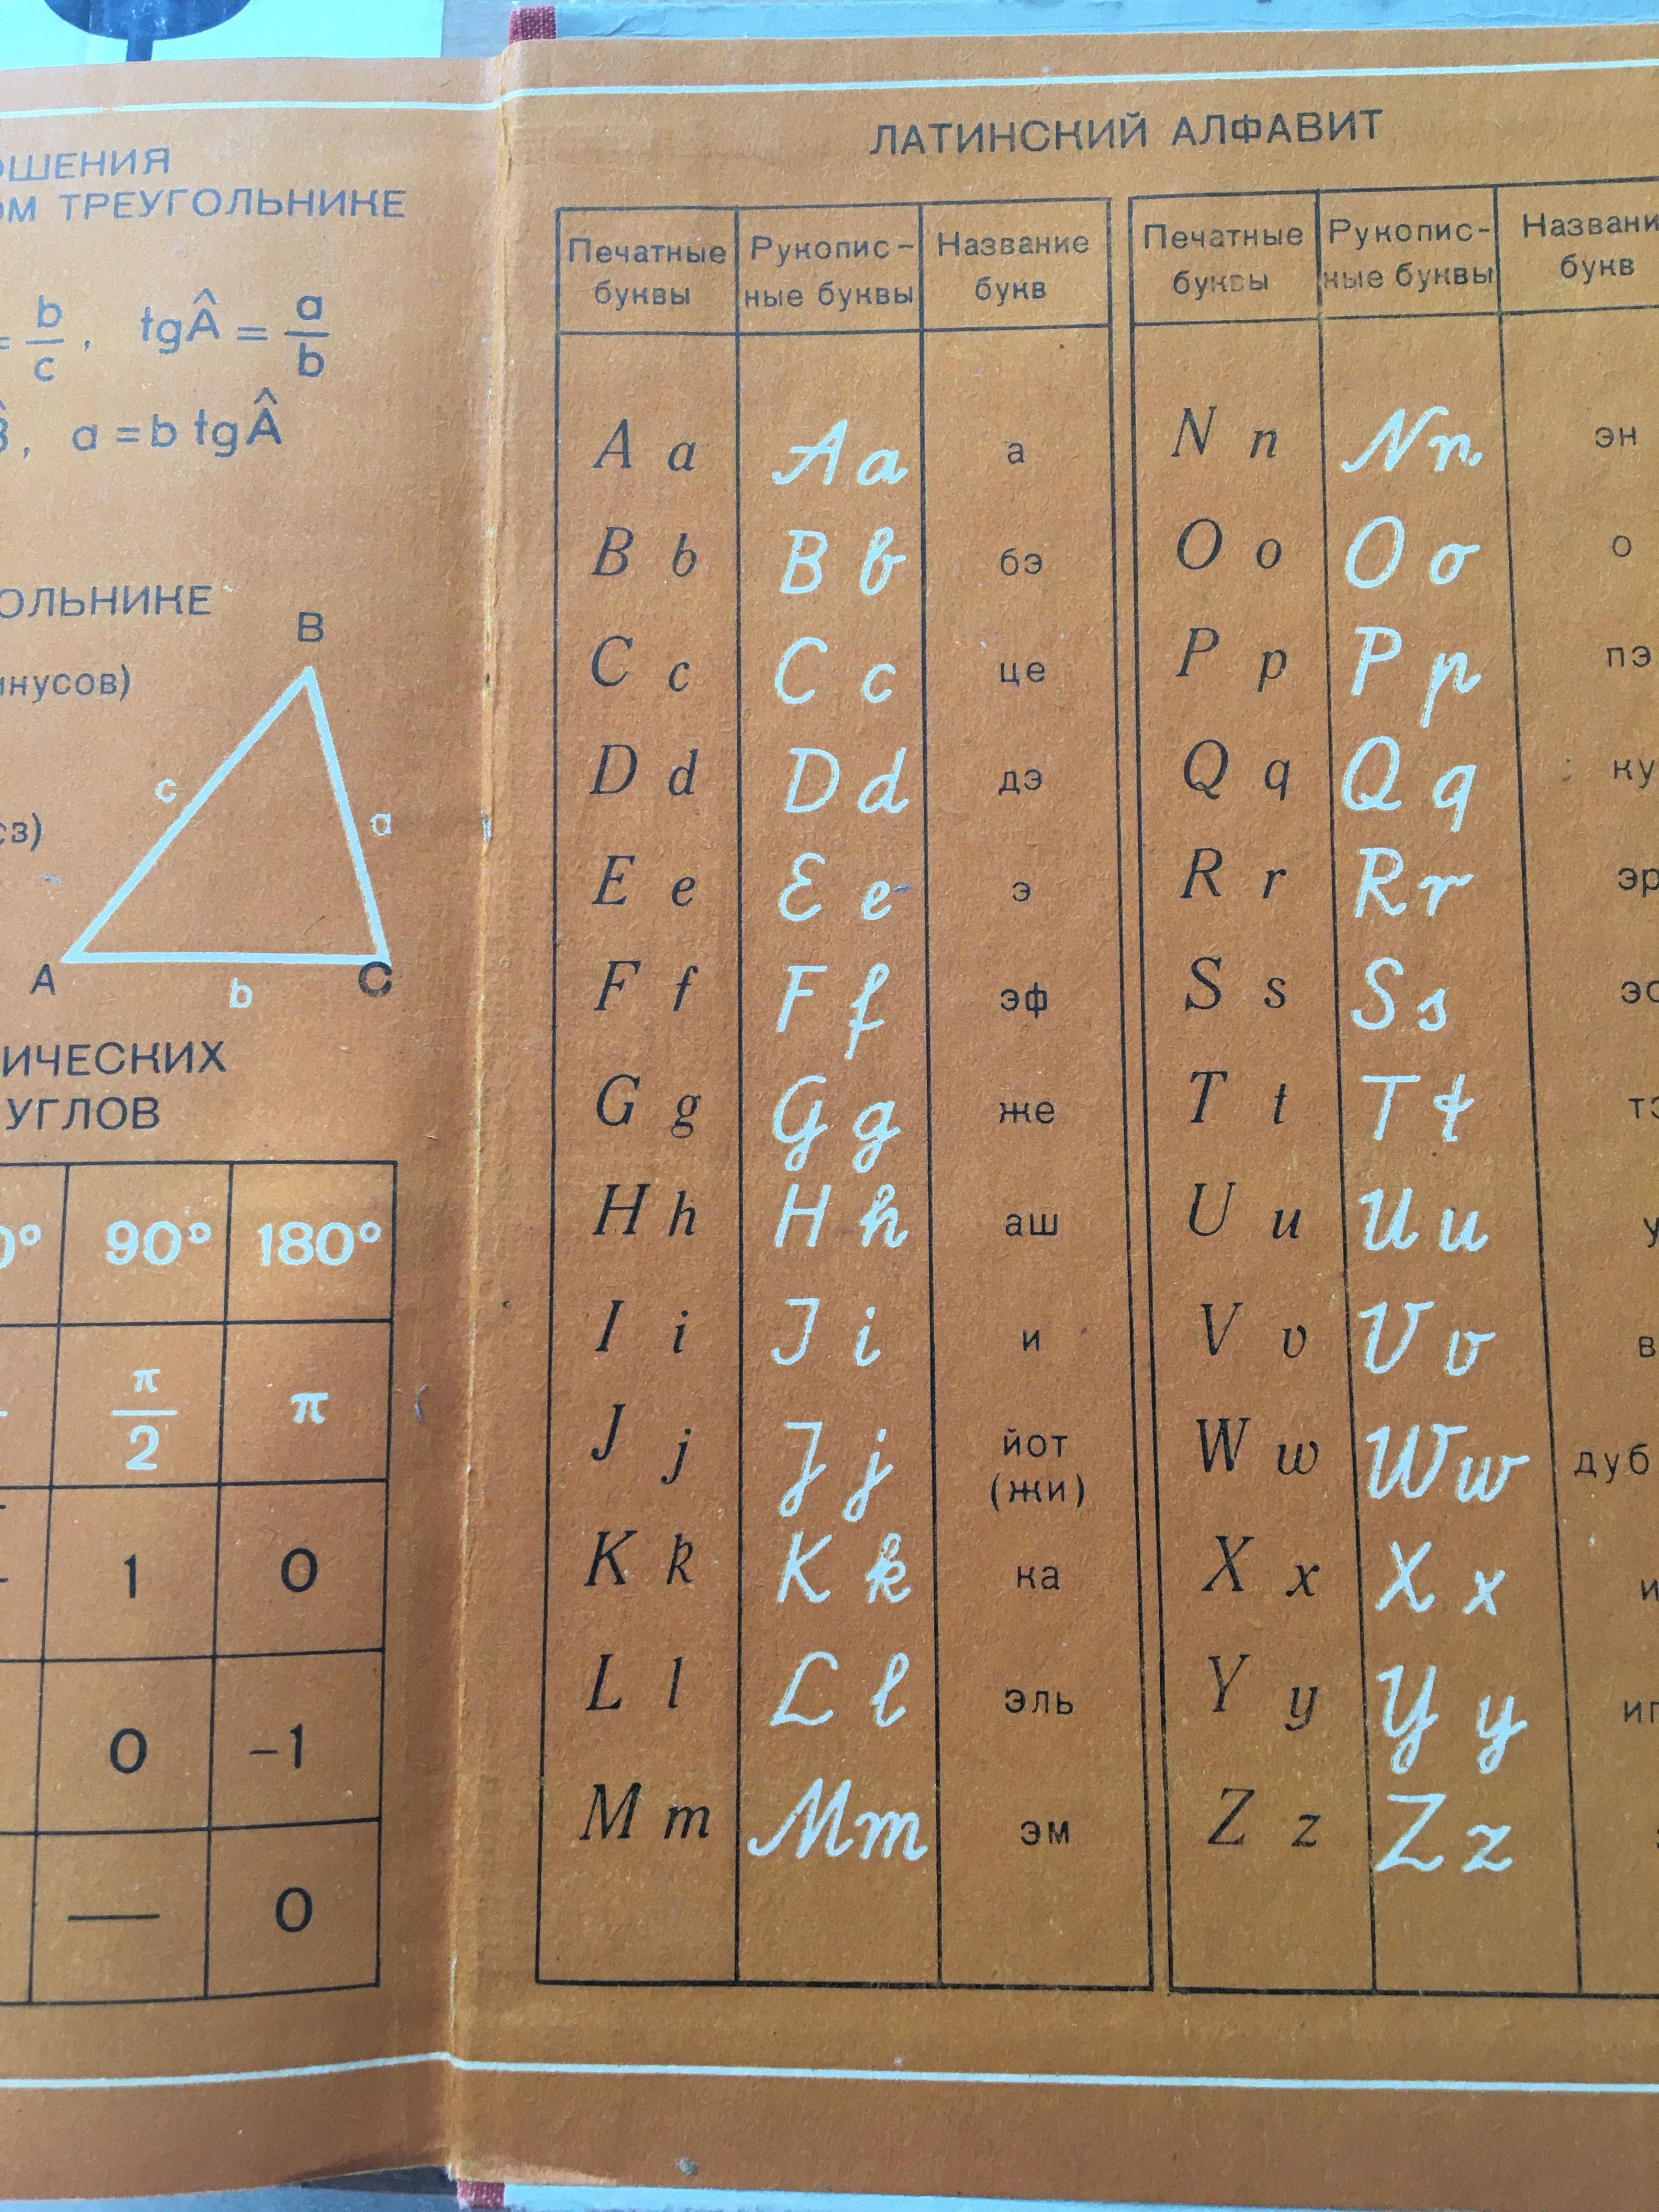 ОШЕНИЯ
ОМ ТРЕУГОЛЬНИКЕ
= b/c, tgÂ = a/b
B̂, a = b tgÂ
ОЛЬНИКЕ
инусов)
B
c
a
A
b
C
ИЧЕСКИХ
УГЛОВ
0° 90° 180°
π/2 π
1 0
0 –1
— 0
ЛАТИНСКИЙ АЛФАВИТ
Печатные Рукопис- Название
буквы ные буквы букв
A a A a а
B b B b бэ
C c C c це
D d D d дэ
E e E e э
F f F f эф
G g G g же
H h H h аш
I i I i и
J j J j йот
(жи)
K k K k ка
L l L l эль
M m M m эм
Печатные Рукопис- Названи
буквы ные буквы букв
N n N n эн
O o O o о
P p P p пэ
Q q Q q ку
R r R r эр
S s S s эс
T t T t тэ
U u U u у
V v V v в
W w W w дуб
X x X x и
Y y Y y иг
Z z Z z